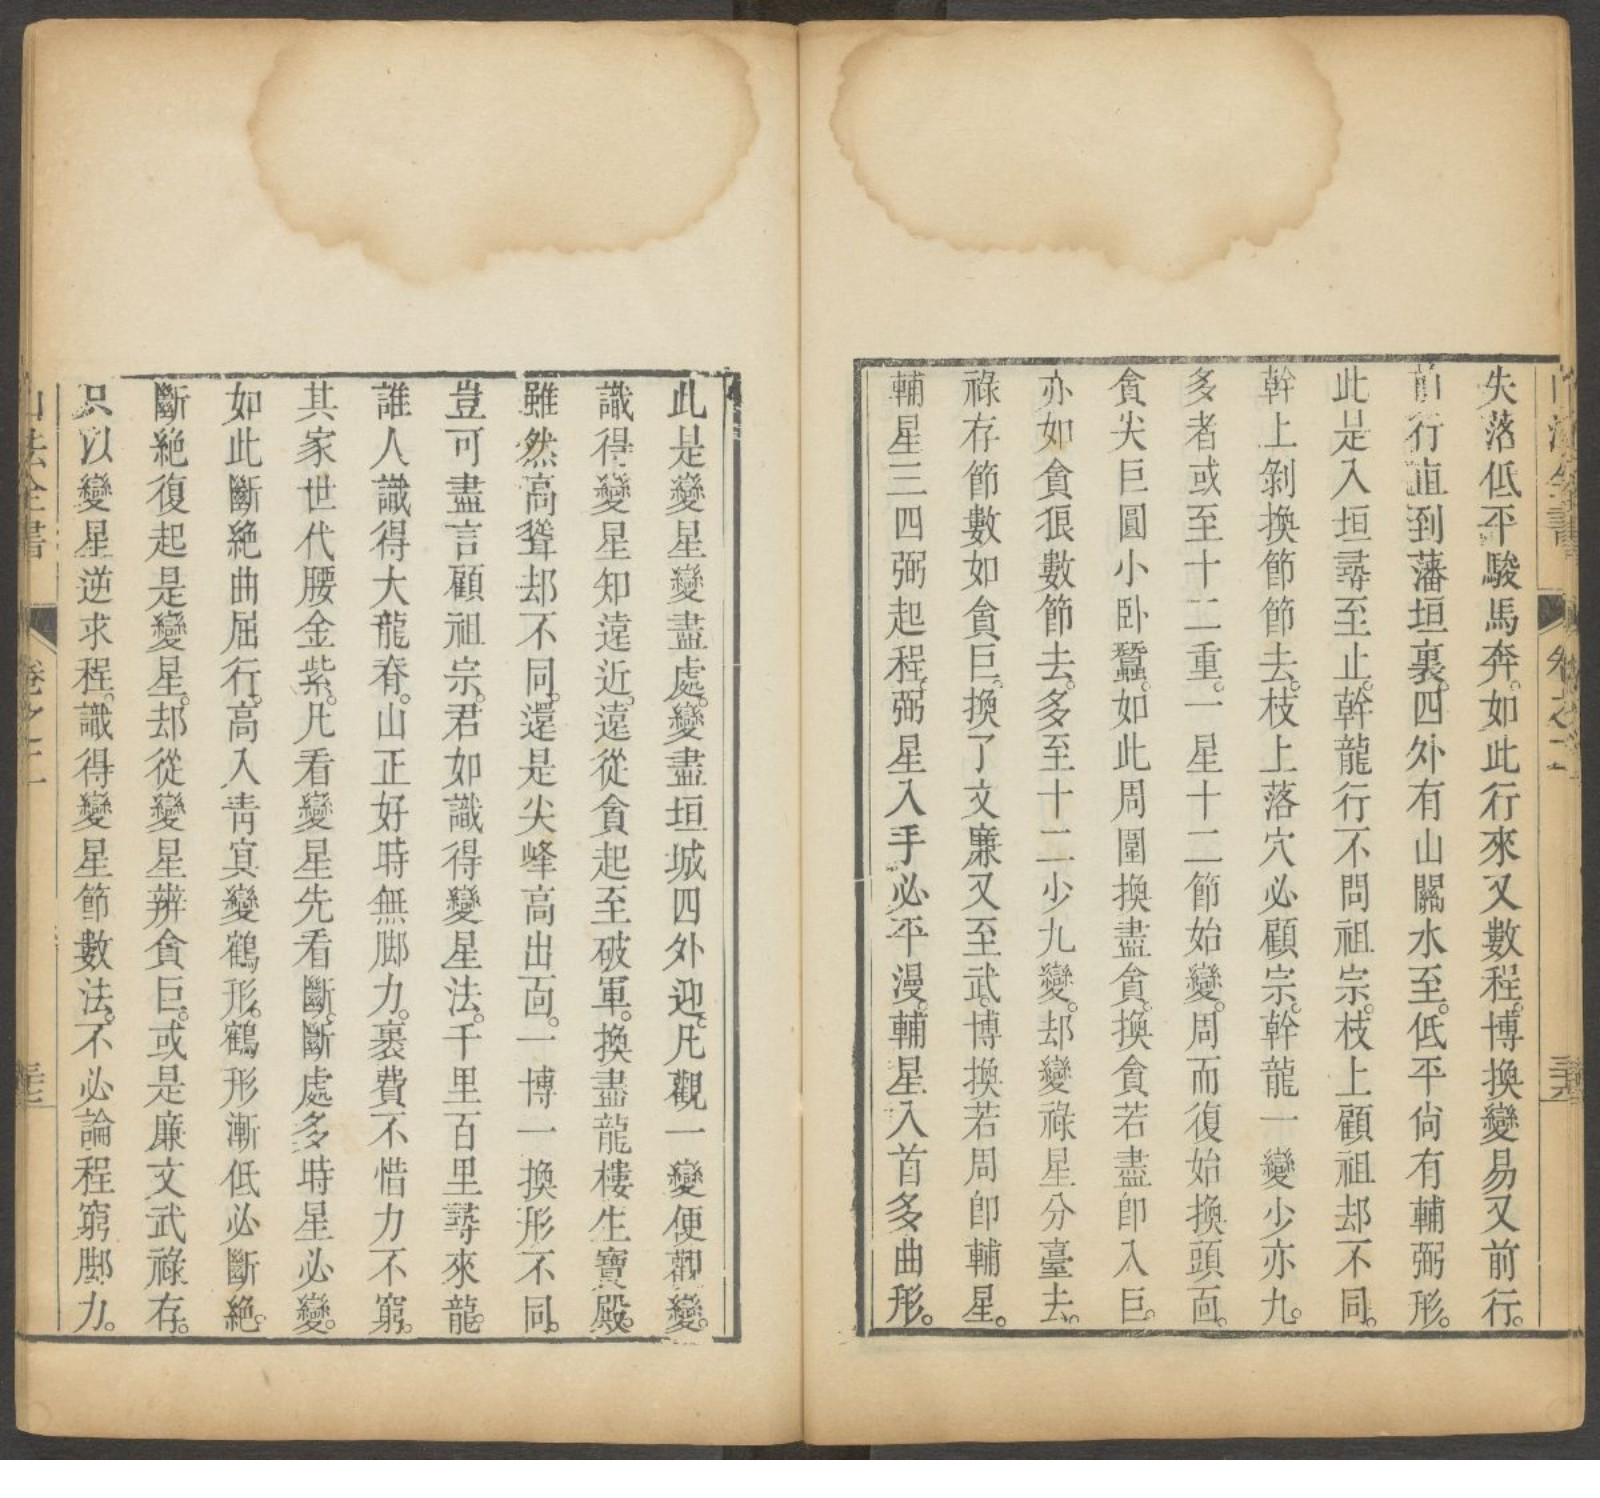 失落低平駿馬奔。如此行來又數程。博換變易又前行。
前行直到藩垣裏。四外有山關水至。低平尙有輔弼形。
此是入垣尋至止。幹龍行不問祖宗。枝上顧祖却不同。
幹上剝換節節去。枝上落穴必顧宗。幹龍一變少亦九。
多者或至十二重。一星十二節始變。周而復始換頭面。
貪尖巨圓小卧蠶。如此周圍換盡貪。換貪若盡卽入巨。
亦如貪狼數節去。多至十二少九變。却變祿星分臺去。
祿存節數如貪巨。換了文廉又至武。博換若周卽輔星。
輔星三四弼起程。弼星入手必平漫。輔星入首多曲形。
此是變星變盡處。變盡垣城四外迎。凡觀一變便觀變。
識得變星知遠近。遠從貪起至破軍。換盡龍樓生寶殿。
雖然高聳却不同。還是尖峰高出面。一博一換形不同。
豈可盡言顧祖宗。君如識得變星法。千里百里尋來龍。
誰人識得大龍脊。山正好時無脚力。裹費不惜力不窮。
其家世代腰金紫。凡看變星先看斷。斷處多時星必變。
如此斷絶曲屈行。高入靑冥變鶴形。鶴形漸低必斷絶。
斷絶復起是變星。却從變星辨貪巨。或是廉文武祿存。
只以變星逆求程。識得變星節數法。不必論程窮脚力。
山法全書 卷之二